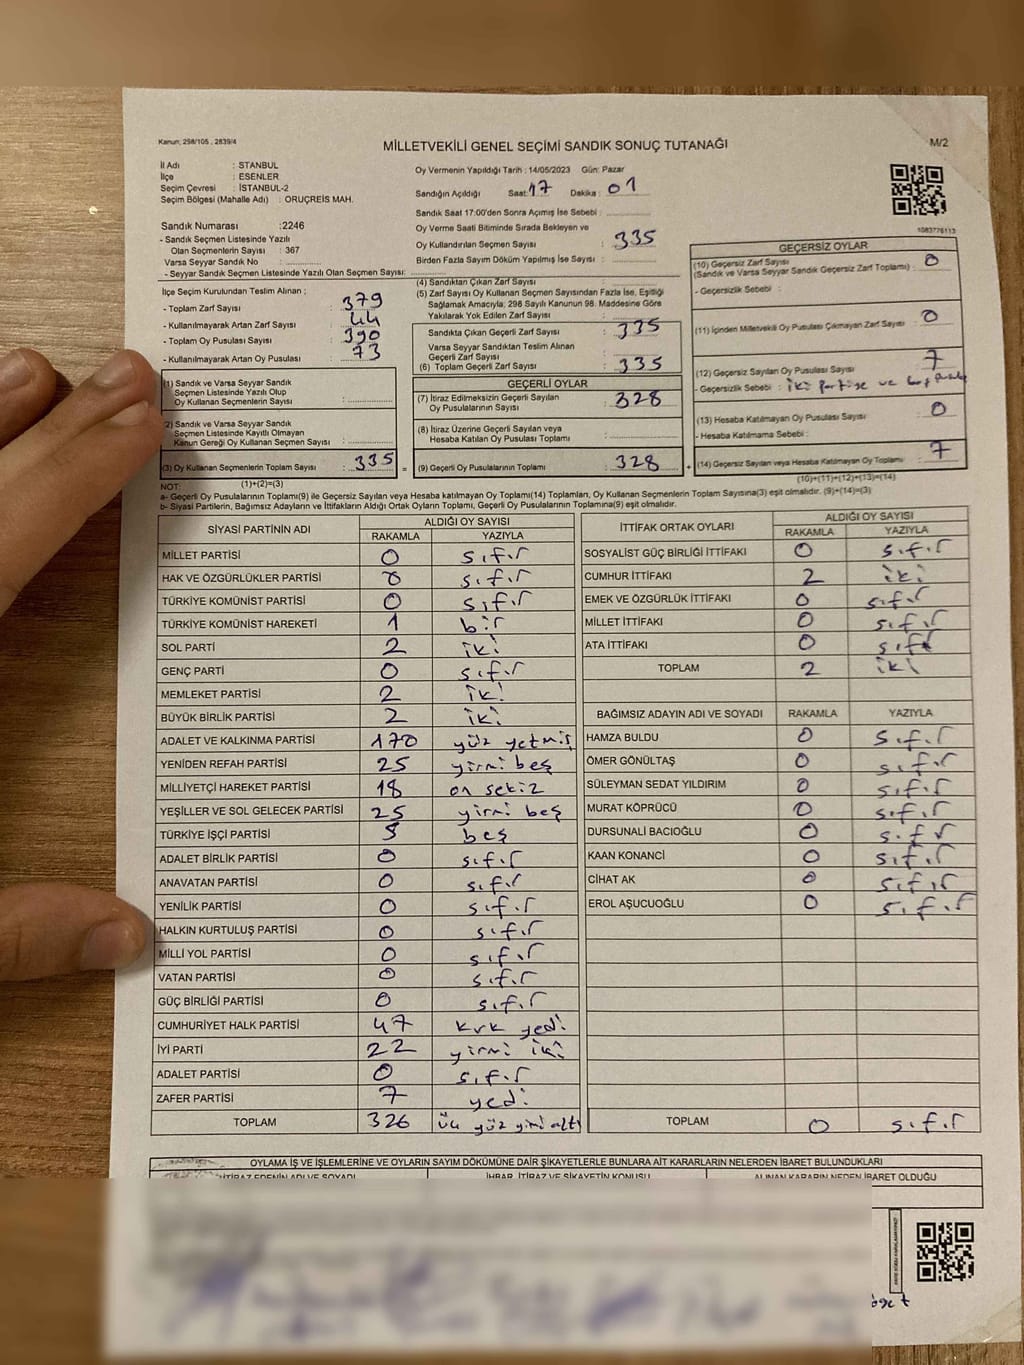 Kanun; 298/105 , 2839/4
MİLLETVEKİLİ GENEL SEÇİMİ SANDIK SONUÇ TUTANAĞI
M/2
İl Adı : STANBUL
İlçe : ESENLER
Seçim Çevresi : İSTANBUL-2
Seçim Bölgesi (Mahalle Adı) : ORUÇREİS MAH.
Sandık Numarası :2246
- Sandık Seçmen Listesinde Yazılı
Olan Seçmenlerin Sayısı : 367
Varsa Seyyar Sandık No :
- Seyyar Sandık Seçmen Listesinde Yazılı Olan Seçmen Sayısı:
Oy Vermenin Yapıldığı Tarih : 14/05/2023 Gün: Pazar
Sandığın Açıldığı Saat: 17 Dakika : 01
Sandık Saat 17:00'den Sonra Açımış İse Sebebi :
Oy Verme Saati Bitiminde Sırada Bekleyen ve
Oy Kullandırılan Seçmen Sayısı : 335
Birden Fazla Sayım Döküm Yapılmış İse Sayısı :
1083776113
İlçe Seçim Kurulundan Teslim Alınan ;
- Toplam Zarf Sayısı : 379
- Kullanılmayarak Artan Zarf Sayısı : 44
- Toplam Oy Pusulası Sayısı : 390
- Kullanılmayarak Artan Oy Pusulası : 73
(1) Sandık ve Varsa Seyyar Sandık
Seçmen Listesinde Yazılı Olup
Oy Kullanan Seçmenlerin Sayısı :
(2) Sandık ve Varsa Seyyar Sandık
Seçmen Listesinde Kayıtlı Olmayan
Kanun Gereği Oy Kullanan Seçmen Sayısı :
(3) Oy Kullanan Seçmenlerin Toplam Sayısı : 335 =
(4) Sandıktan Çıkan Zarf Sayısı :
(5) Zarf Sayısı Oy Kullanan Seçmen Sayısından Fazla İse, Eşitliği
Sağlamak Amacıyla; 298 Sayılı Kanunun 98. Maddesine Göre
Yakılarak Yok Edilen Zarf Sayısı :
Sandıkta Çıkan Geçerli Zarf Sayısı : 335
Varsa Seyyar Sandıktan Teslim Alınan
Geçerli Zarf Sayısı :
(6) Toplam Geçerli Zarf Sayısı : 335
GEÇERLİ OYLAR
(7) İtiraz Edilmeksizin Geçerli Sayılan
Oy Pusulalarının Sayısı : 328
(8) İtiraz Üzerine Geçerli Sayılan veya
Hesaba Katılan Oy Pusulası Toplamı :
(9) Geçerli Oy Pusulalarının Toplamı : 328 +
GEÇERSİZ OYLAR
(10) Geçersiz Zarf Sayısı
(Sandık ve Varsa Seyyar Sandık Geçersiz Zarf Toplamı) : 0
- Geçersizlik Sebebi :
(11) İçinden Milletvekili Oy Pusulası Çıkmayan Zarf Sayısı : 0
(12) Geçersiz Sayılan Oy Pusulası Sayısı : 7
- Geçersizlik Sebebi : iki partiye ve boş
(13) Hesaba Katılmayan Oy Pusulası Sayısı : 0
- Hesaba Katılmama Sebebi :
(14) Geçersiz Sayılan veya Hesaba Katılmayan Oy Toplamı : 7
NOT: (1)+(2)=(3) (10)+(11)+(12)+(13)=(14)
a- Geçerli Oy Pusulalarının Toplamı(9) ile Geçersiz Sayılan veya Hesaba katılmayan Oy Toplamı(14) Toplamları, Oy Kullanan Seçmenlerin Toplam Sayısına(3) eşit olmalıdır. (9)+(14)=(3)
b- Siyasi Partilerin, Bağımsız Adayların ve İttifakların Aldığı Ortak Oyların Toplamı, Geçerli Oy Pusulalarının Toplamına(9) eşit olmalıdır.
SİYASİ PARTİNİN ADI ALDIĞI OY SAYISI
RAKAMLA YAZIYLA
MİLLET PARTİSİ 0 sıfır
HAK VE ÖZGÜRLÜKLER PARTİSİ 0 sıfır
TÜRKİYE KOMÜNİST PARTİSİ 0 sıfır
TÜRKİYE KOMÜNİST HAREKETİ 1 bir
SOL PARTİ 2 iki
GENÇ PARTİ 0 sıfır
MEMLEKET PARTİSİ 2 iki
BÜYÜK BİRLİK PARTİSİ 2 iki
ADALET VE KALKINMA PARTİSİ 170 yüz yetmiş
YENİDEN REFAH PARTİSİ 25 yirmi beş
MİLLİYETÇİ HAREKET PARTİSİ 18 on sekiz
YEŞİLLER VE SOL GELECEK PARTİSİ 25 yirmi beş
TÜRKİYE İŞÇİ PARTİSİ 5 beş
ADALET BİRLİK PARTİSİ 0 sıfır
ANAVATAN PARTİSİ 0 sıfır
YENİLİK PARTİSİ 0 sıfır
HALKIN KURTULUŞ PARTİSİ 0 sıfır
MİLLİ YOL PARTİSİ 0 sıfır
VATAN PARTİSİ 0 sıfır
GÜÇ BİRLİĞİ PARTİSİ 0 sıfır
CUMHURİYET HALK PARTİSİ 47 kırk yedi
İYİ PARTİ 22 yirmi iki
ADALET PARTİSİ 0 sıfır
ZAFER PARTİSİ 7 yedi
TOPLAM 326 üç yüz yirmi altı
İTTİFAK ORTAK OYLARI ALDIĞI OY SAYISI
RAKAMLA YAZIYLA
SOSYALİST GÜÇ BİRLİĞİ İTTİFAKI 0 sıfır
CUMHUR İTTİFAKI 2 iki
EMEK VE ÖZGÜRLÜK İTTİFAKI 0 sıfır
MİLLET İTTİFAKI 0 sıfır
ATA İTTİFAKI 0 sıfır
TOPLAM 2 iki
BAĞIMSIZ ADAYIN ADI VE SOYADI RAKAMLA YAZIYLA
HAMZA BULDU 0 sıfır
ÖMER GÖNÜLTAŞ 0 sıfır
SÜLEYMAN SEDAT YILDIRIM 0 sıfır
MURAT KÖPRÜCÜ 0 sıfır
DURSUNALİ BACIOĞLU 0 sıfır
KAAN KONANCİ 0 sıfır
CİHAT AK 0 sıfır
EROL AŞUCUOĞLU 0 sıfır
TOPLAM 0 sıfır
OYLAMA İŞ VE İŞLEMLERİNE VE OYLARIN SAYIM DÖKÜMÜNE DAİR ŞİKAYETLERLE BUNLARA AİT KARARLARIN NELERDEN İBARET BULUNDUKLARI
İTİRAZ EDENİN ADI VE SOYADI İHBAR, İTİRAZ VE ŞİKAYETİN KONUSU ALINAN KARARIN NEDEN İBARET OLDUĞU